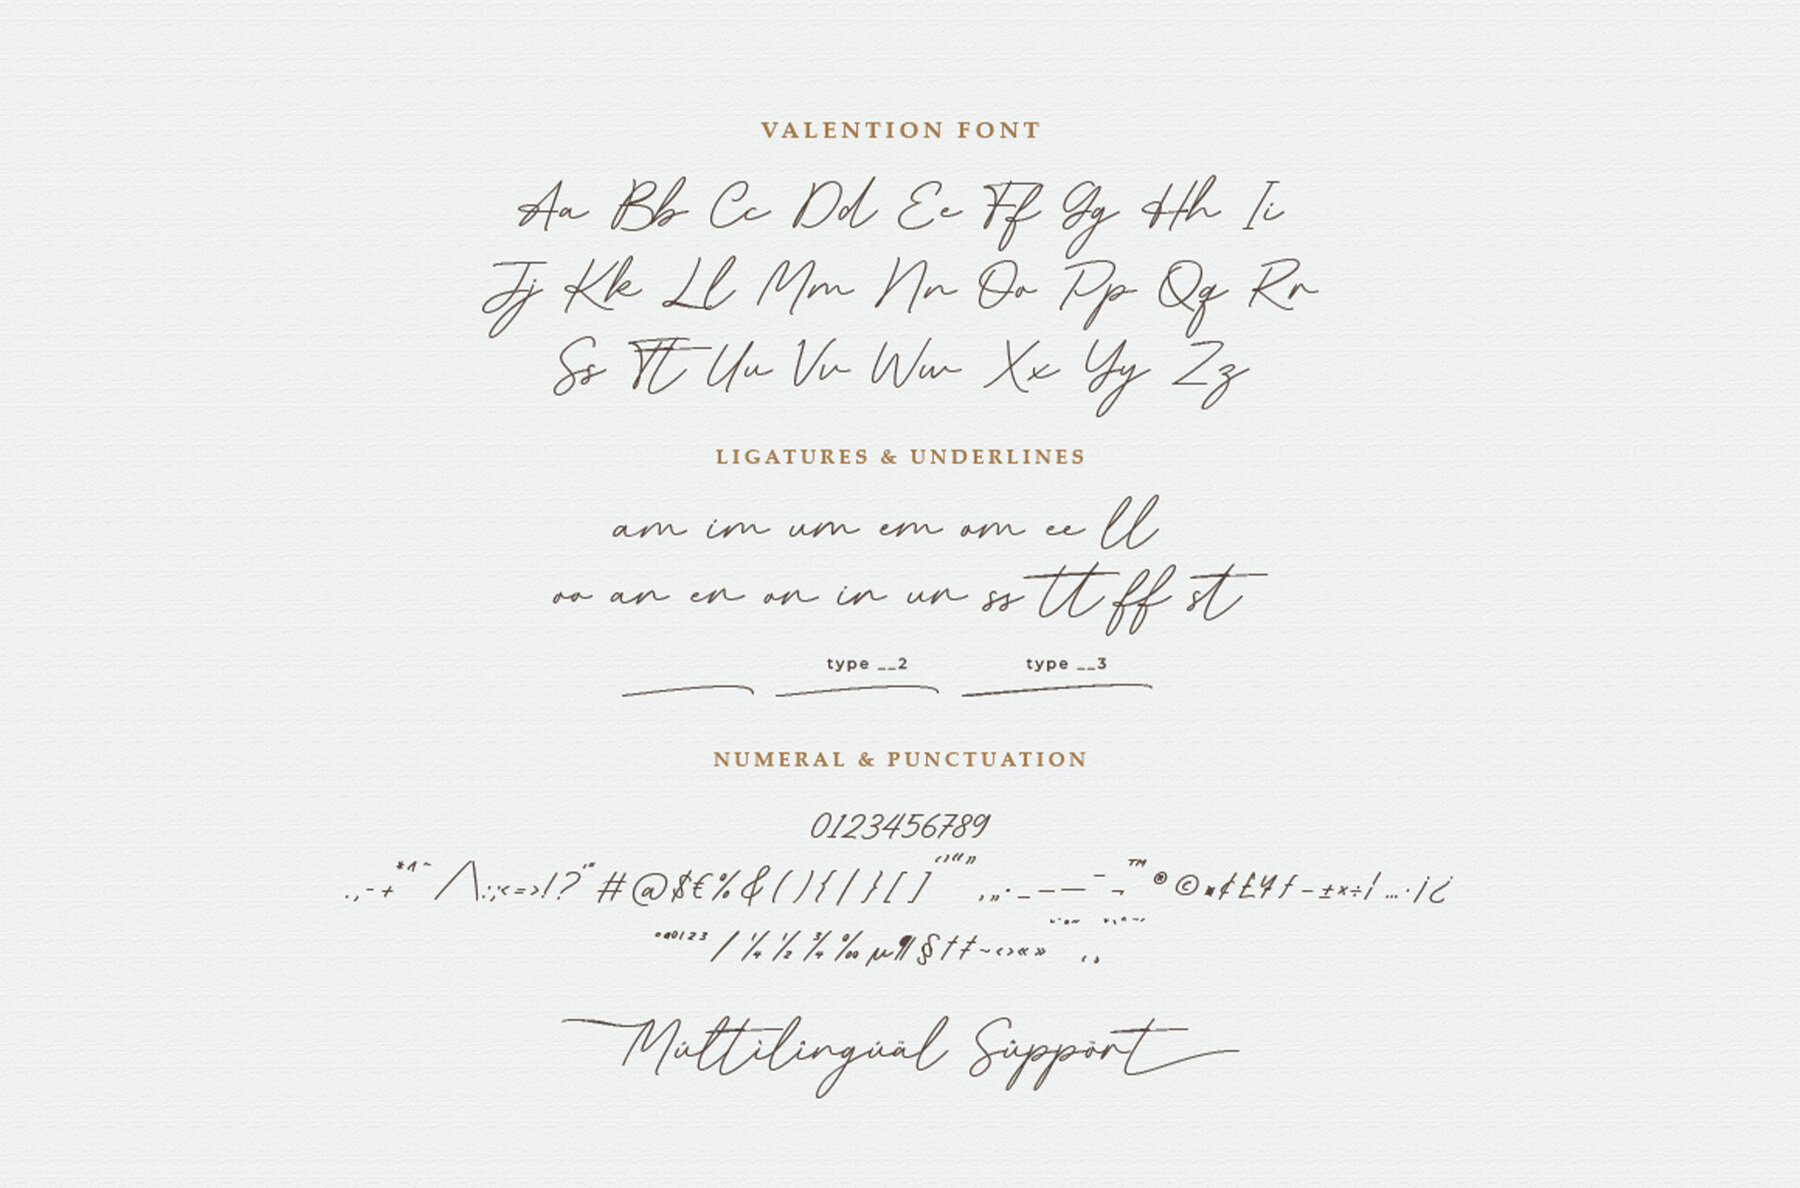 VALENTION FONT
Aa Bb Cc Dd Ee Ff Gg Hh Ii
Jj Kk Ll Mm Nn Oo Pp Qq Rr
Ss Tt Uu Vv Ww Xx Yy Zz
LIGATURES & UNDERLINES
am im um em om ee ll
oo an en on in un ss tt ff st
type __2 type __3
NUMERAL & PUNCTUATION
0123456789
.,-+*^~/\:;<=>!?'"#@$€%&(){|}[]‘’“”‚„·_–—¯¬™®©¤¢£¥ƒ−±×÷¦…·¡¿
ªº0123⁄¼½¾‰µ¶§†‡~‹›«»
Múltílíngúäl Süppört